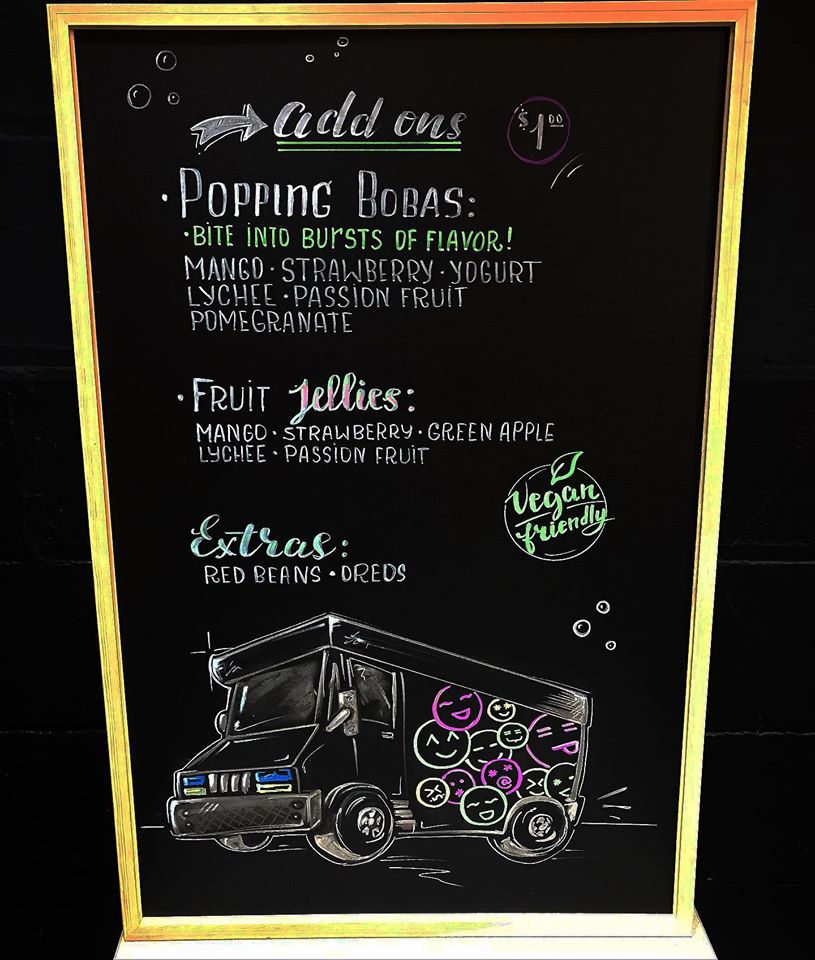 add ons $1.00
• POPPING BOBAS:
• BITE INTO BURSTS OF FLAVOR!
MANGO • STRAWBERRY • YOGURT
LYCHEE • PASSION FRUIT
POMEGRANATE
• FRUIT Jellies:
MANGO • STRAWBERRY • GREEN APPLE
LYCHEE • PASSION FRUIT
Vegan
friendly
Extras:
RED BEANS • OREOS